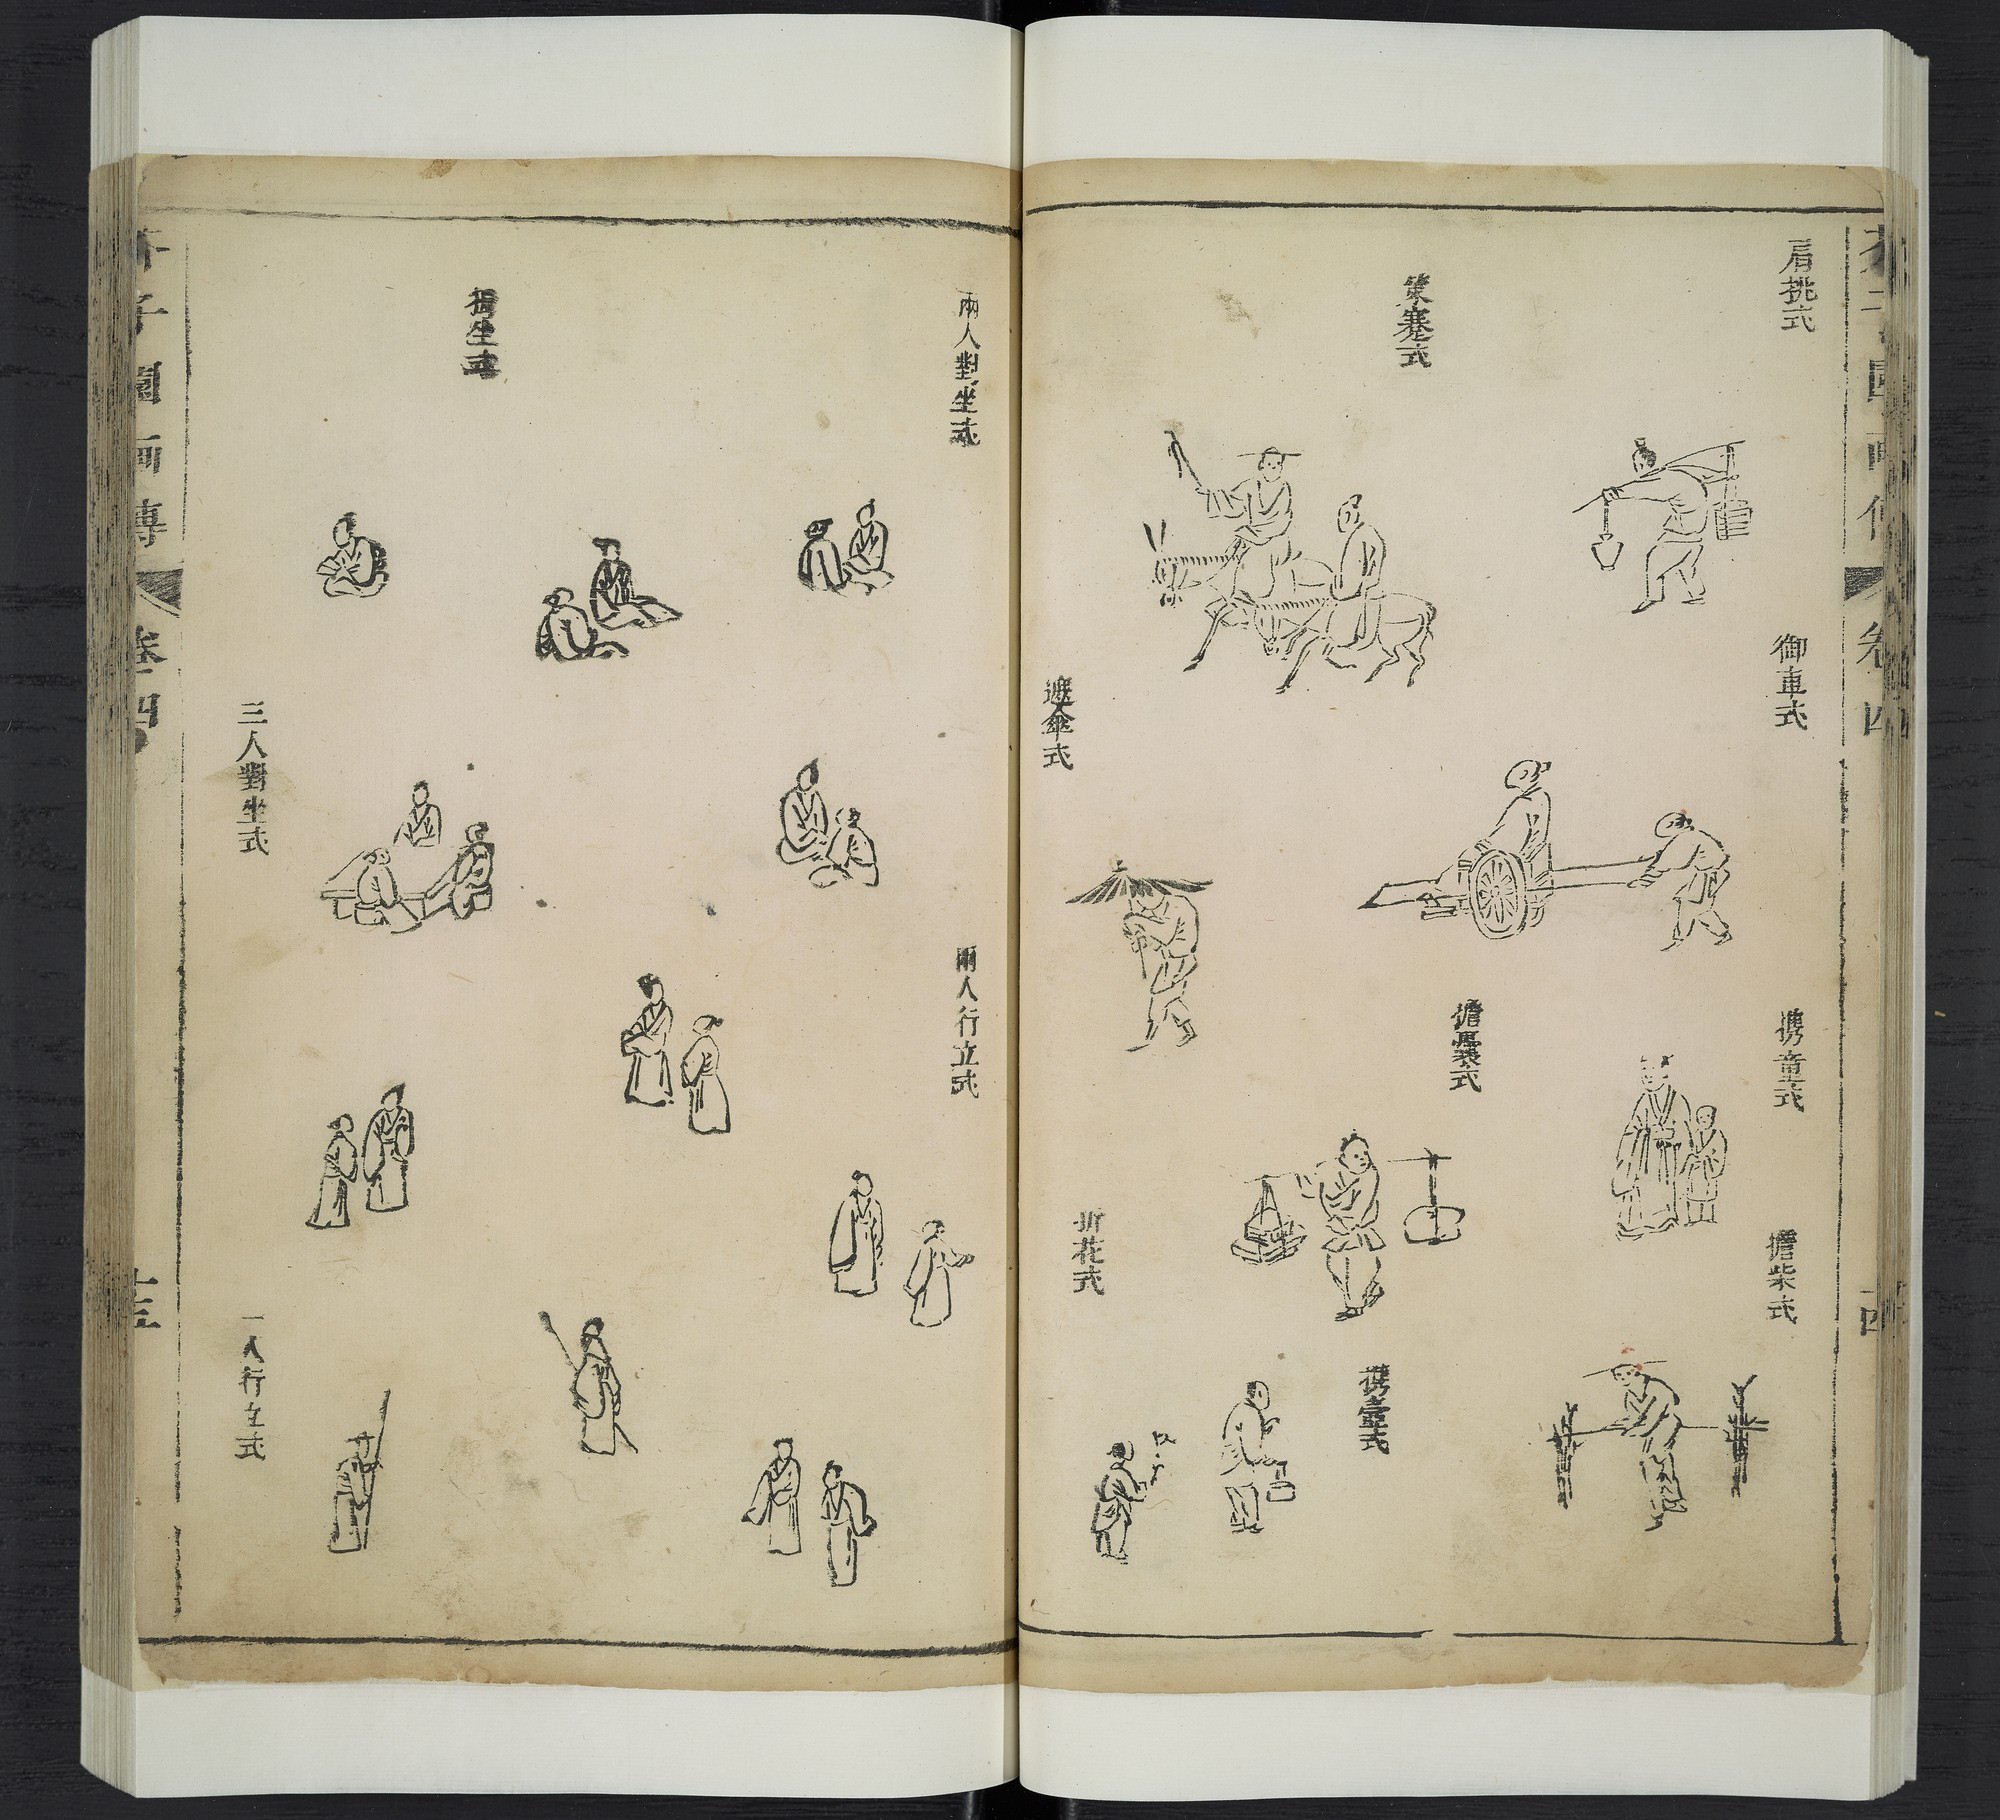 肩挑式
策蹇式
御車式
遮傘式
攜童式
擔囊式
擔柴式
折花式
攜壺式
卷四
兩人對坐式
獨坐式
三人對坐式
兩人行立式
一人行立式
芥子園画傳
卷四
十三